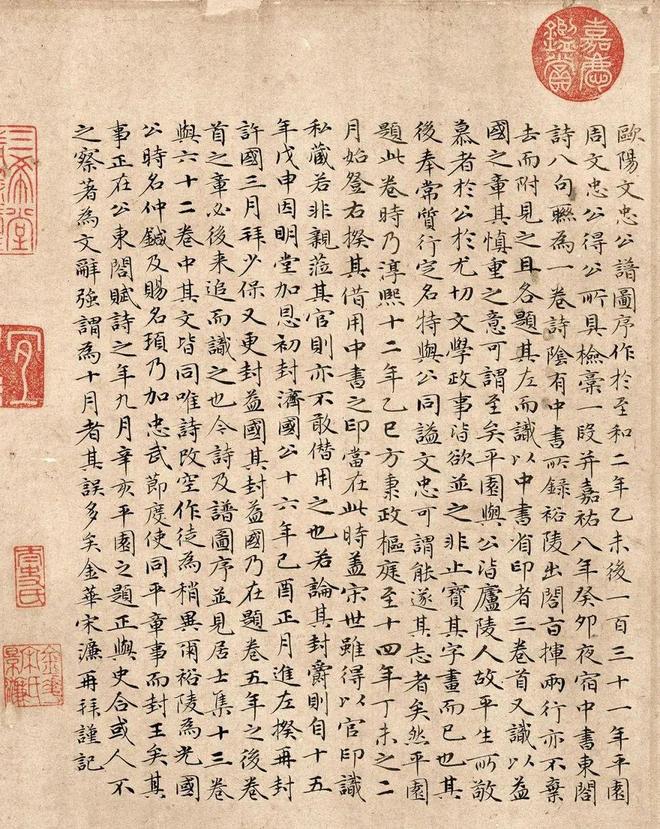 嘉慶鑑賞
歐陽文忠公譜圖序作於至和二年乙未後一百三十一年平園
周文忠公得公所具檢稾一段并嘉祐八年癸卯夜宿中書東閤
詩八句聯為一卷詩陰有中書所錄裕陵出閤旨揮兩行亦不棄
去而附見之且各題其左而識以中書省印者三卷首又識以益
國之章其慎重之意可謂至矣平園與公皆廬陵人故平生所敬
慕者於公於尤切文學政事皆欲並之非止寶其字畫而已也其
後奉常質行定名特與公同謚文忠可謂能遂其志者矣然平園
題此卷時乃淳熙十二年乙巳方秉政樞庭至十四年丁未之二
月始登右揆其借用中書之印當在此時蓋宋世雖得以官印識
私藏若非親蒞其官則亦不敢僭用之也若論其封爵則自十五
年戊申因明堂加恩初封濟國公十六年己酉正月進左揆再封
許國三月拜少保又更封益國其封益國乃在題卷五年之後卷
首之章必後來追而識之也今詩及譜圖序並見居士集十三卷
與六十二卷中其文皆同唯詩改空作徒為稍異爾裕陵為光國
公時名仲鍼及賜名頊乃加忠武節度使同平章事而封王矣其
事正在公東閤賦詩之年九月辛亥平園之題正與史合或人不
之察著為文辭強謂為十月者其誤多矣金華宋濂再拜謹記
三希堂